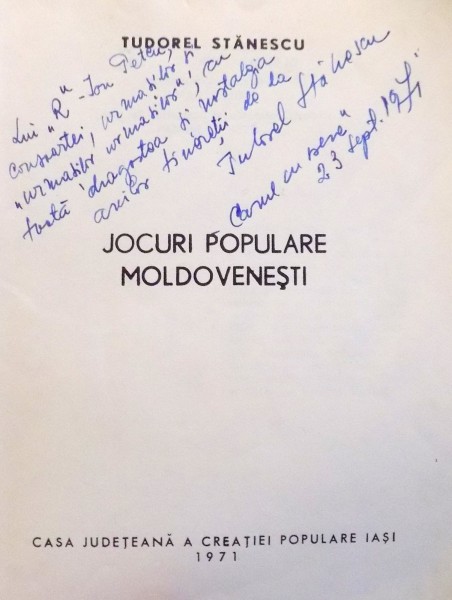 TUDOREL STĂNESCU
Lui "R" - Ion Petcu,
consoartei, urmașilor și
"urmașilor urmașilor", cu
toată dragostea și nostalgia
anilor tinereții de la
"Carul cu bere"
Tudorel Stănescu
23 sept. 1971
JOCURI POPULARE
MOLDOVENEȘTI
CASA JUDEȚEANĂ A CREAȚIEI POPULARE IAȘI
1971